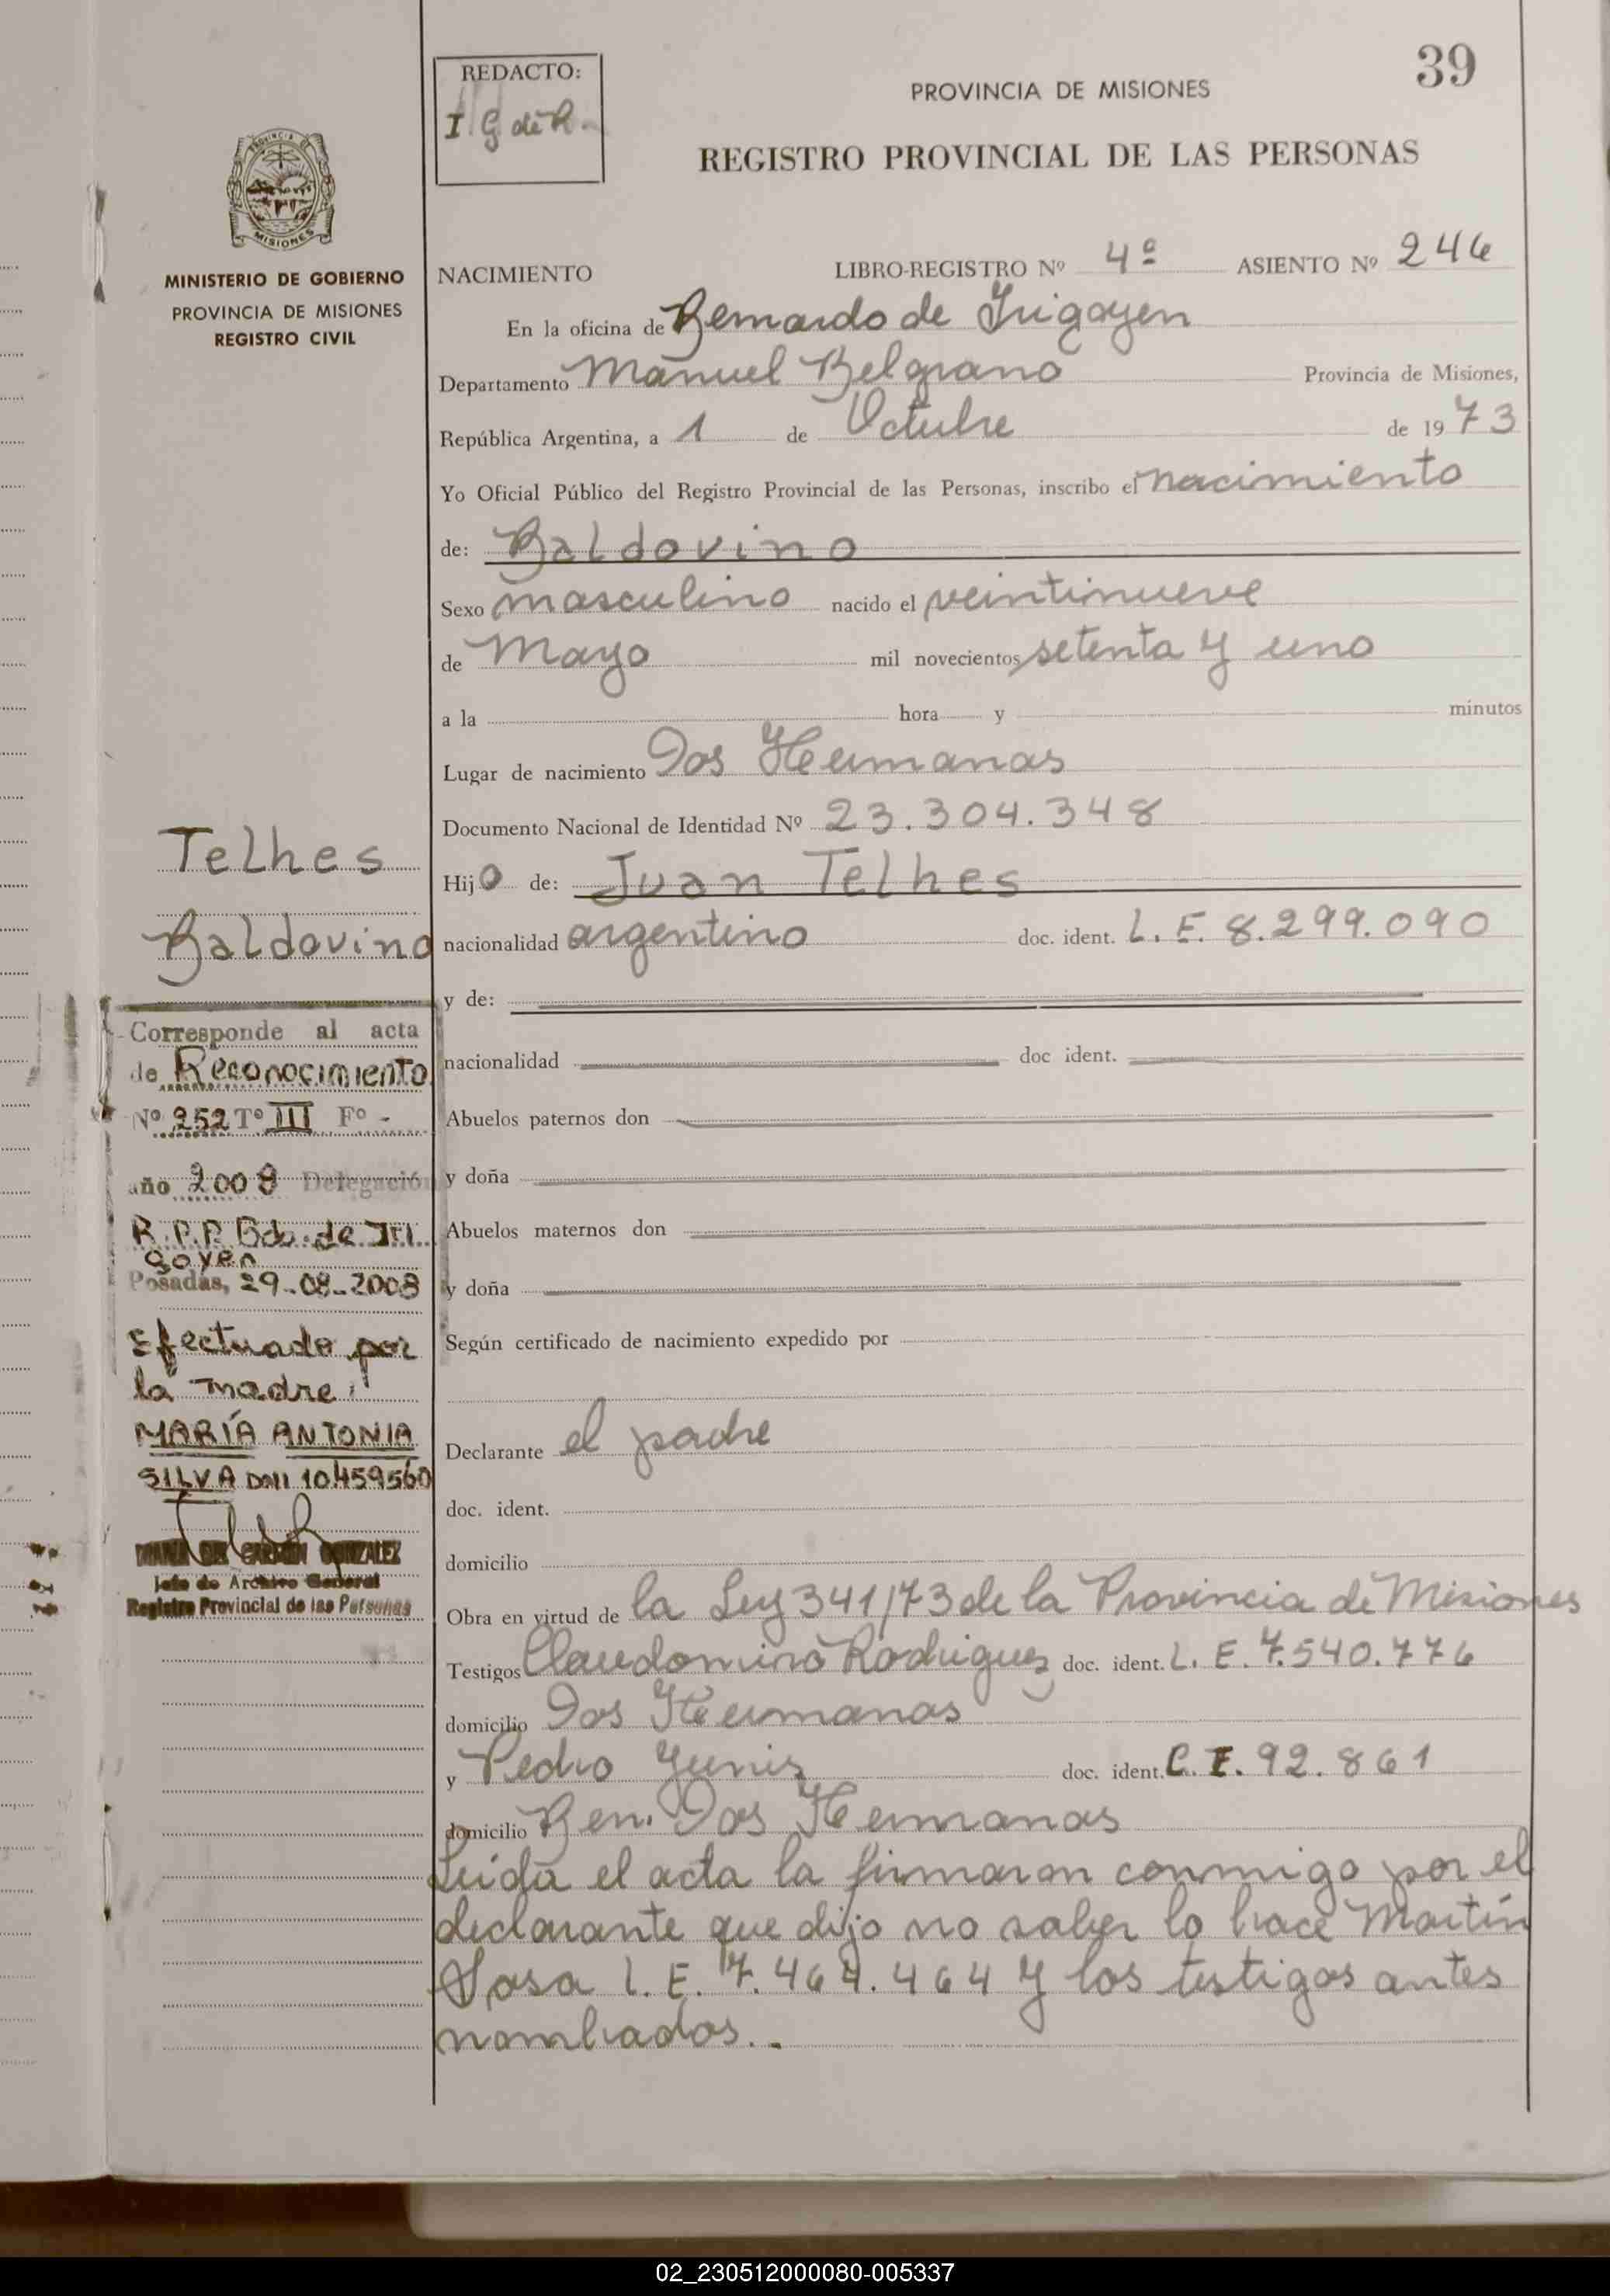 39
REDACTO:
I. G de R.
PROVINCIA DE MISIONES
REGISTRO PROVINCIAL DE LAS PERSONAS
MINISTERIO DE GOBIERNO
PROVINCIA DE MISIONES
REGISTRO CIVIL
NACIMIENTO LIBRO-REGISTRO Nº 4º ASIENTO Nº 246
En la oficina de Bernardo de Irigoyen
Departamento Manuel Belgrano Provincia de Misiones,
República Argentina, a 1 de Octubre de 1973
Yo Oficial Público del Registro Provincial de las Personas, inscribo el nacimiento
de: Baldovino
Sexo masculino nacido el veintinueve
de Mayo mil novecientos setenta y uno
a la hora y minutos
Lugar de nacimiento Dos Hermanas
Documento Nacional de Identidad Nº 23.304.348
Hijo de: Juan Telhes
nacionalidad argentino doc. ident. L. E. 8.299.090
y de:
nacionalidad doc ident.
Abuelos paternos don
y doña
Abuelos maternos don
y doña
Según certificado de nacimiento expedido por
Declarante el padre
doc. ident.
domicilio
Obra en virtud de la Ley 341/73 de la Provincia de Misiones
Testigos Claudomiro Rodriguez doc. ident. L. E. 7.540.776
domicilio Dos Hermanas
y Pedro Yunis doc. ident. C. I. 92.861
domicilio Ben. Dos Hermanas
Leida el acta la firmaron conmigo por el
declarante que dijo no saber lo hace Martín
Sosa L. E. 7.464.464 y los testigos antes
nombrados..-
Telhes
Baldovino
Corresponde al acta
de Reconocimiento
Nº 252 Tº III Fº -
año 2008 Delegación
R.P.P. Bdo. de Iri
goyen
Posadas, 29-08-2008
Efectuado por
la madre:
MARÍA ANTONIA
SILVA DNI 10.459560
GONZALEZ
Jefe de Archivo General
Registro Provincial de las Personas
02_230512000080-005337